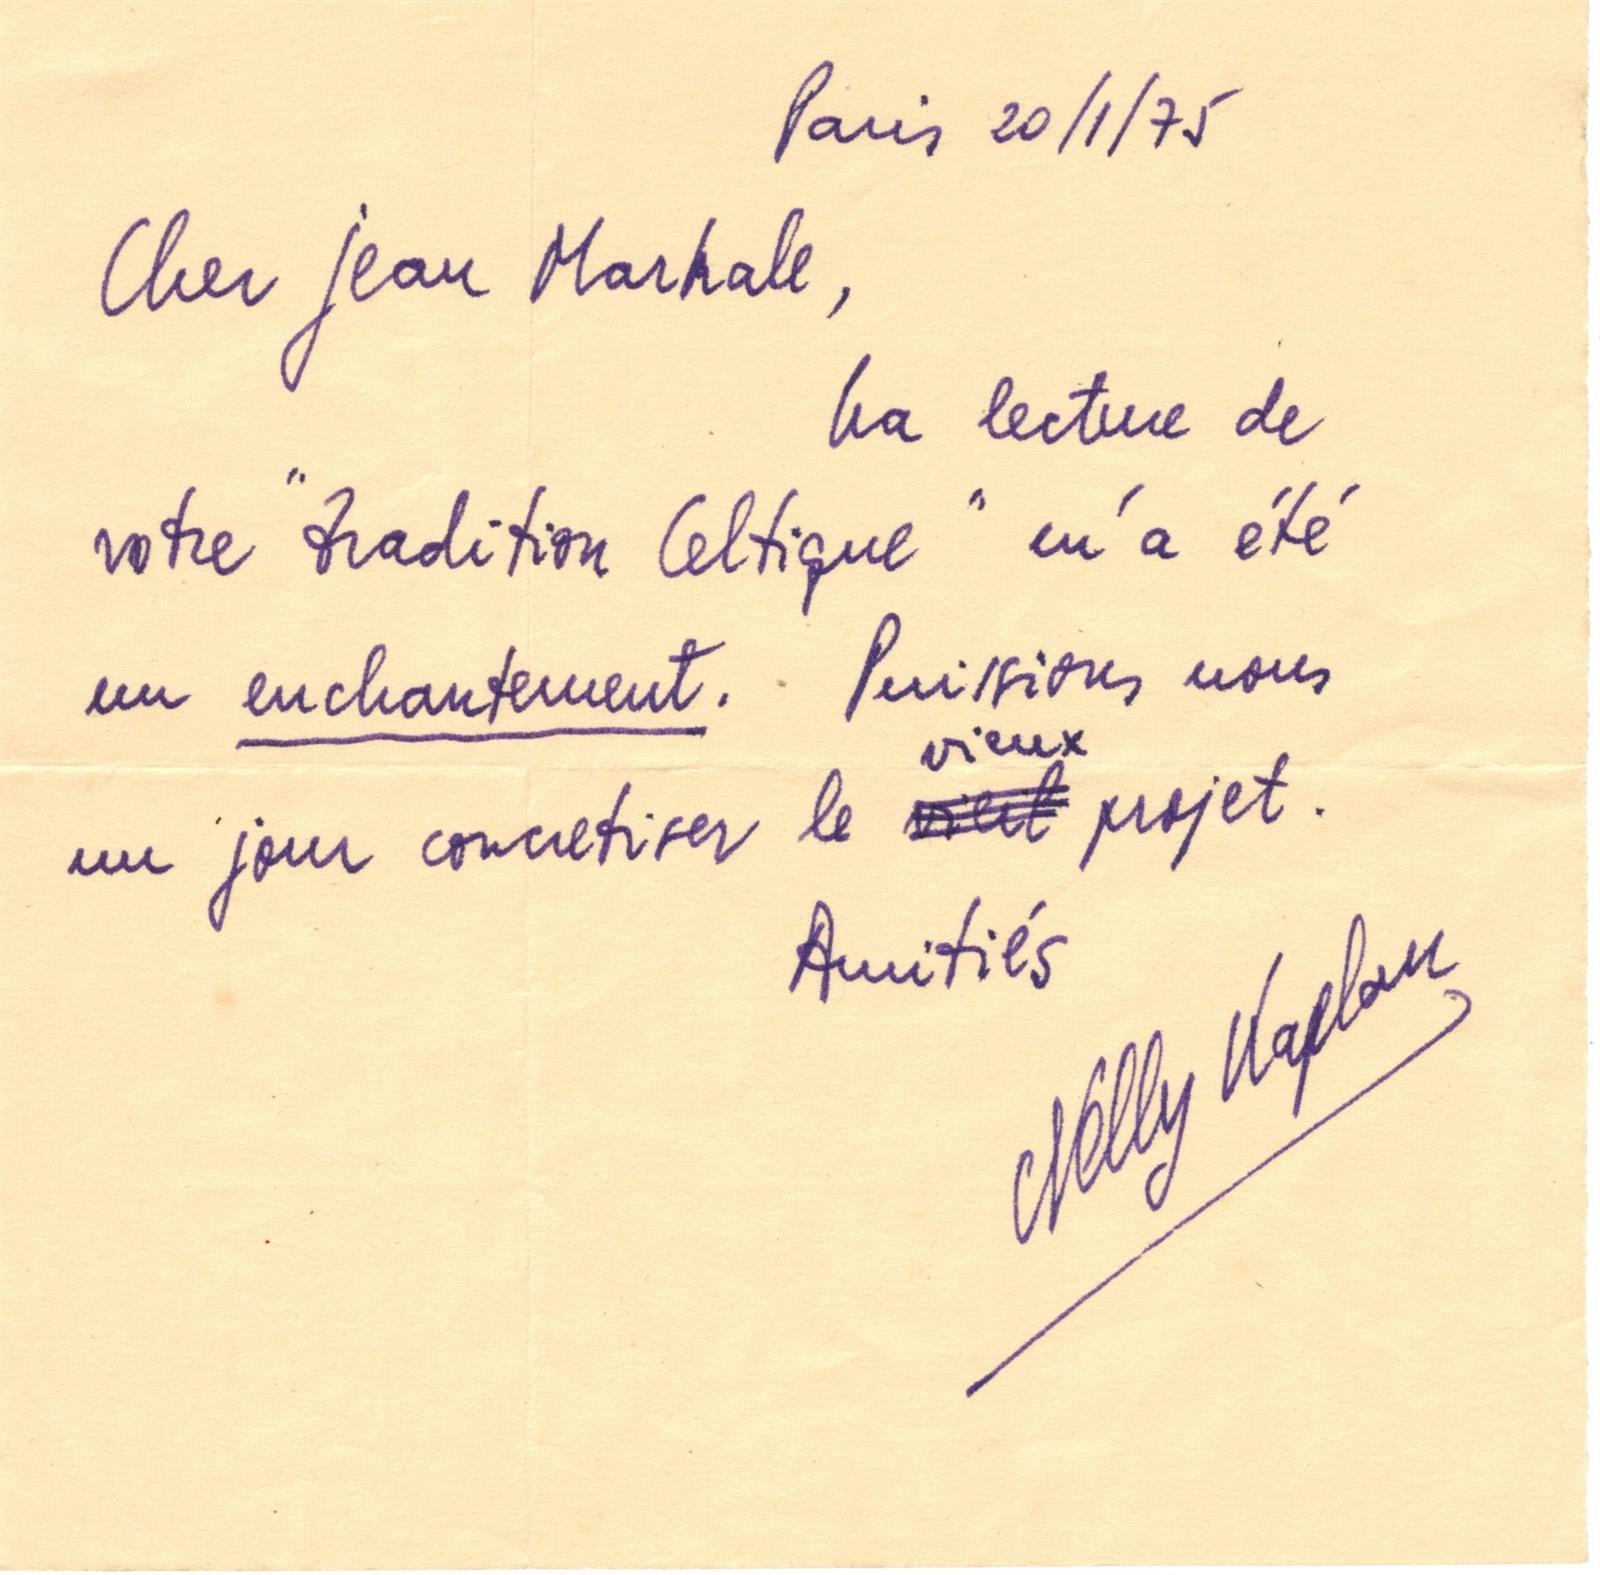 Paris 20/1/75
Cher Jean Markale,
La lecture de
votre "Tradition Celtique" m'a été
un enchantement. Puissions nous
vieux
un jour concretiser le vieil projet.
Amitiés
Nelly Kaplan